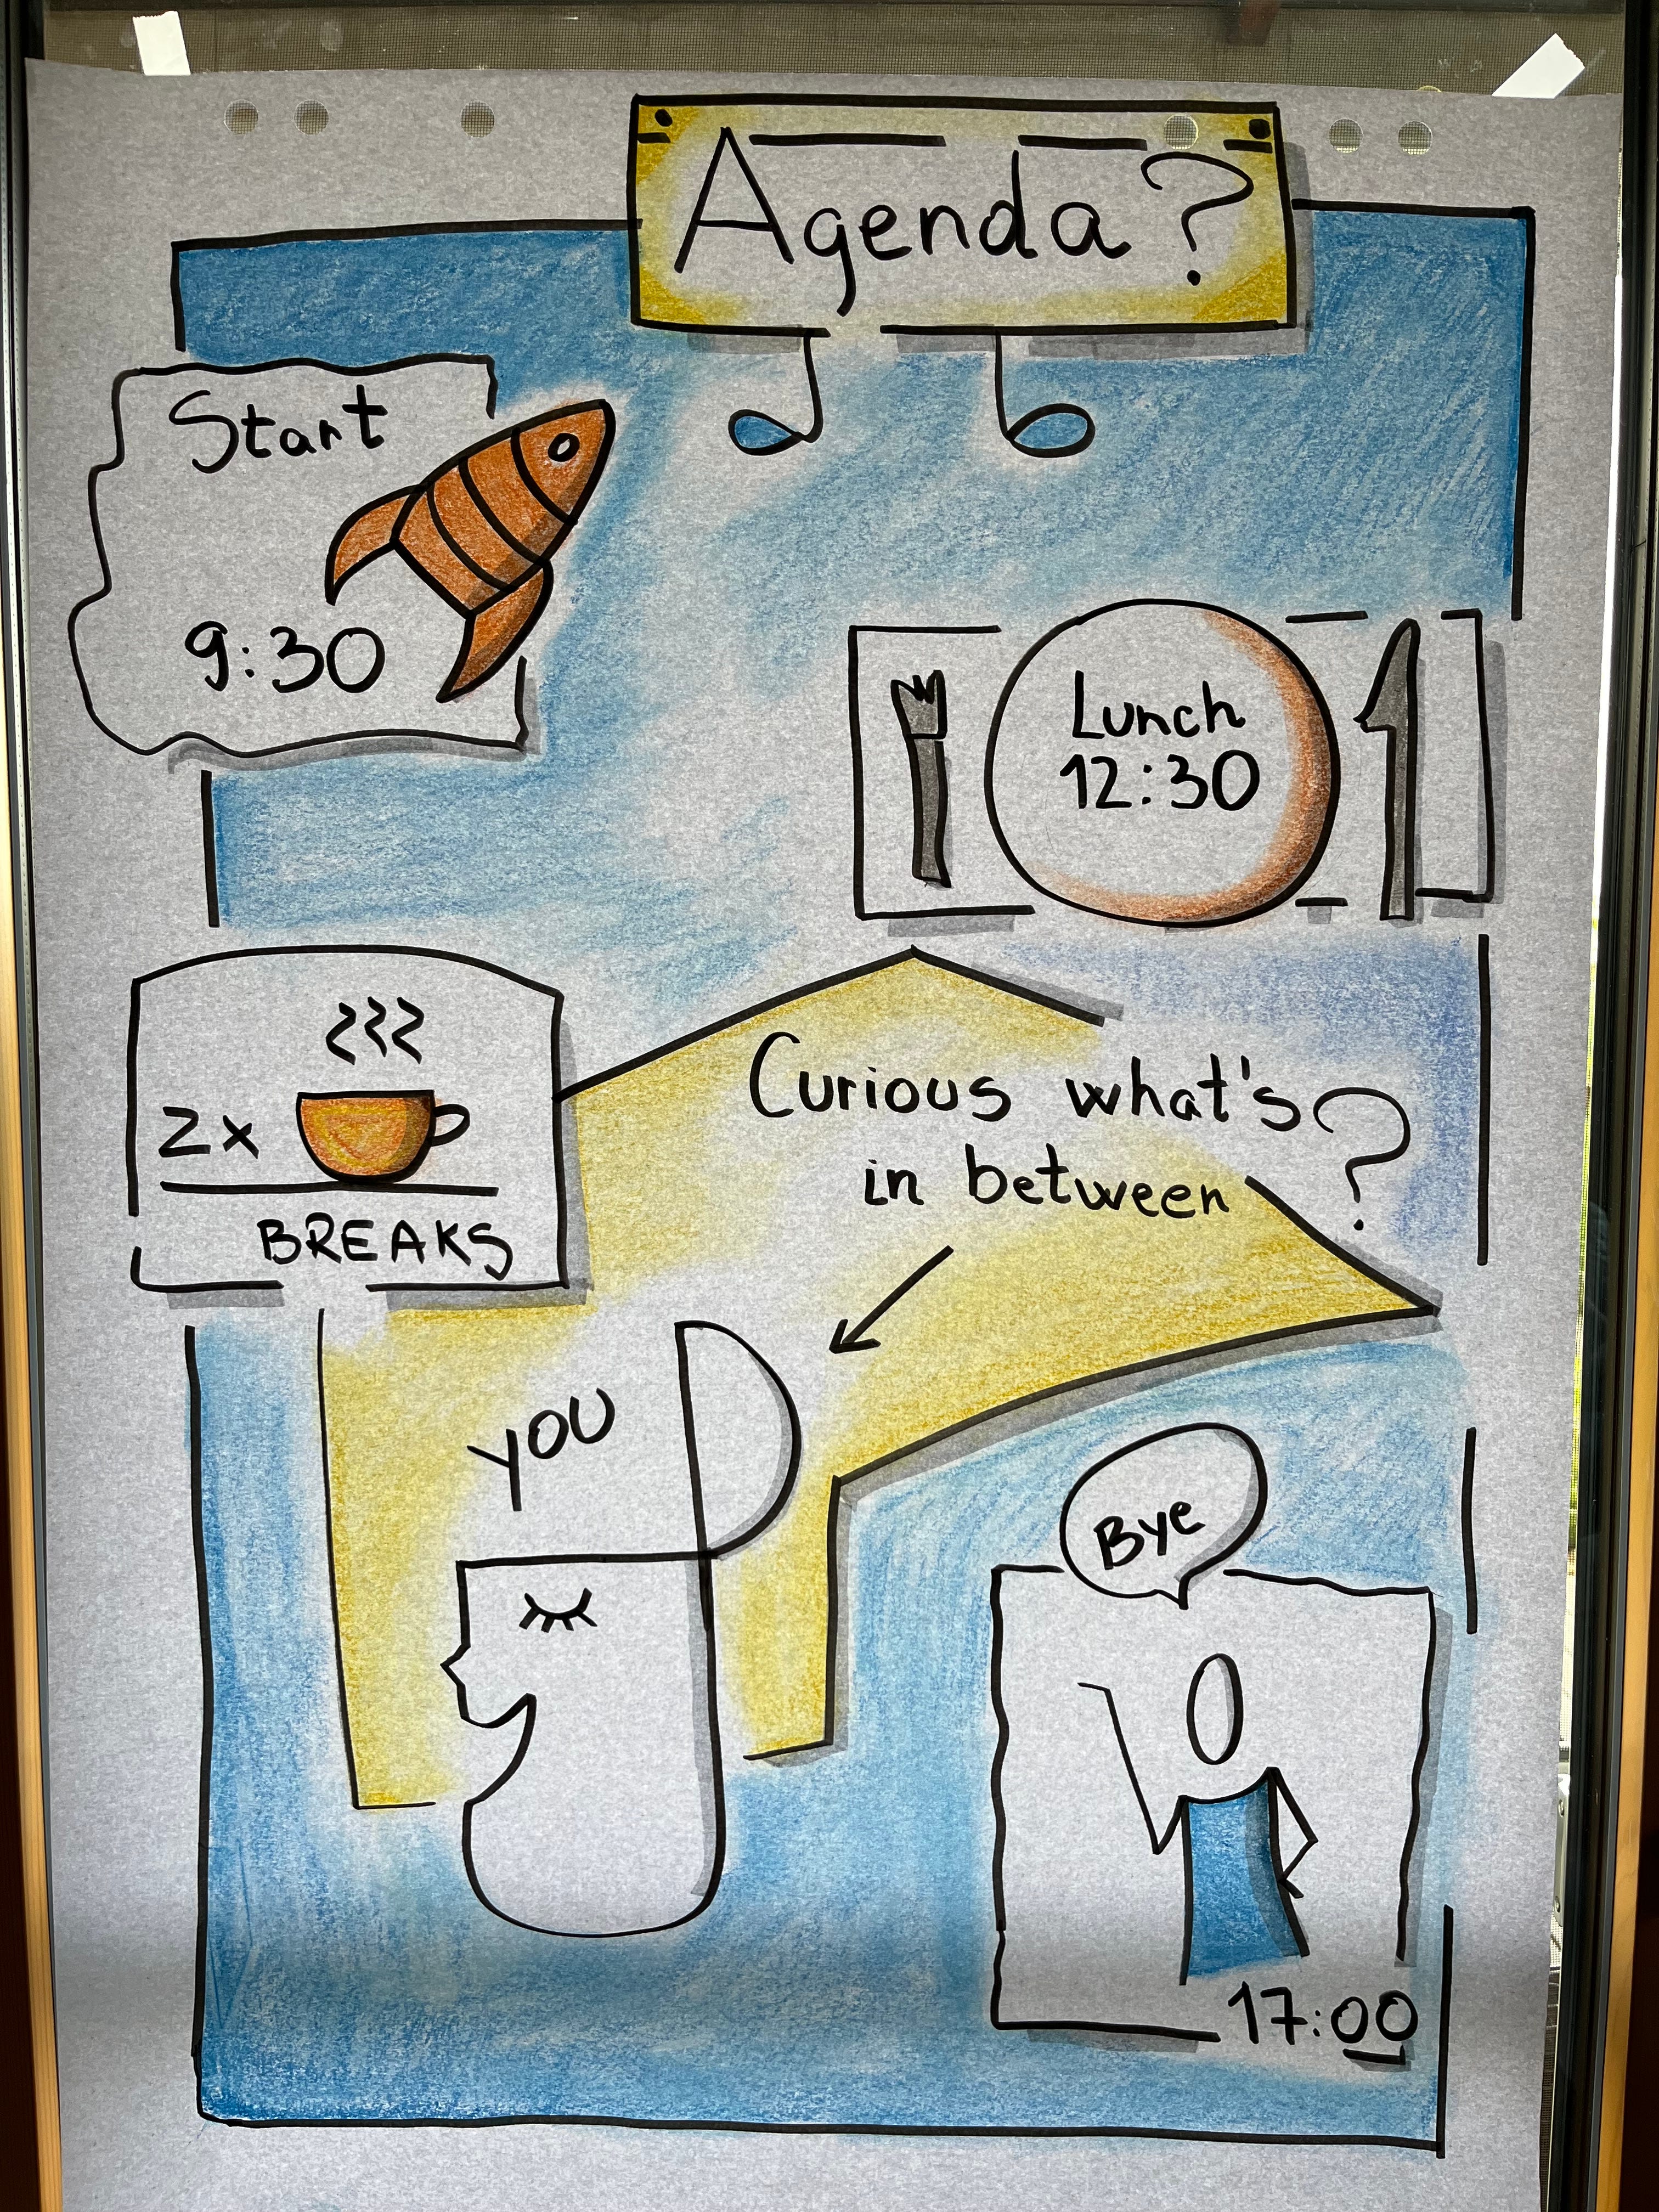 Agenda?
Start
9:30
Lunch
12:30
2x
BREAKS
Curious what's
in between?
YOU
Bye
17:00